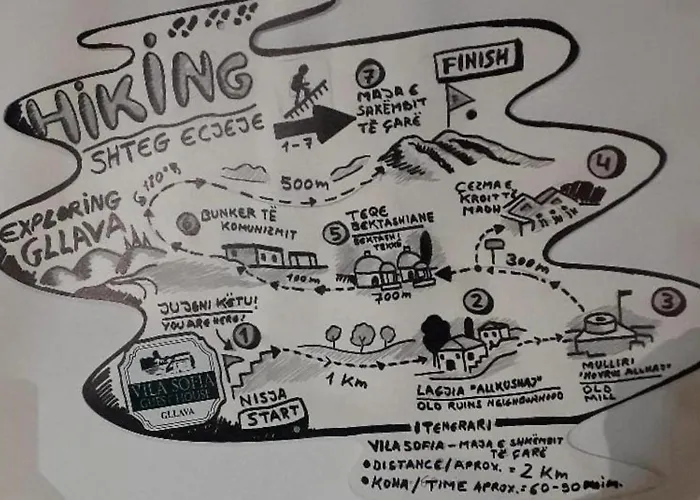 HIKING
SHTEG ECJEJE
1-7
7
MAJA E
SHKËMBIT
TË ÇARË
FINISH
EXPLORING
GLLAVA
500m
4
ÇEZMA E
KROIT TË
MADH
6
BUNKER TË
KOMUNIZMIT
5
TEQE
BEKTASHIANE
BEKTASHI
TEKKE
100m
700m
300m
JU JENI KËTU!
YOU ARE HERE!
1
2
3
VILA SOFIA
GUEST HOUSE
GLLAVA
NISJA
START
1 Km
LAGJIA "ALLKUSHAJ"
OLD RUINS NEIGHBOURHOOD
MULLIRI
OLD
MILL
ITENERARI
VILA SOFIA - MAJA E SHKËMBIT
TË ÇARË
• DISTANCE/APROX. = 2 Km
• KOHA/TIME APROX.: 60-90 min.